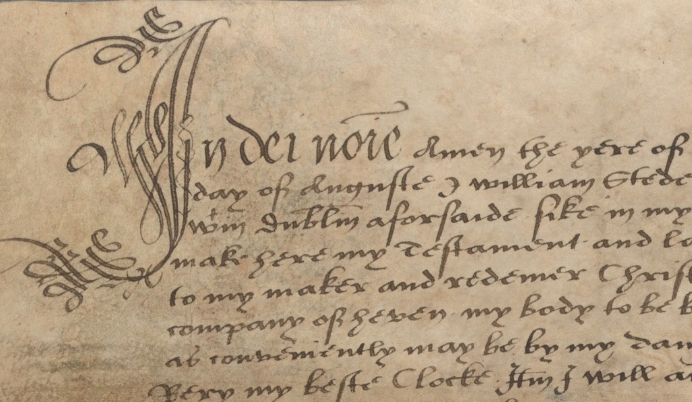 In dei noie Amen the yere of
day of Auguste I william Stede
wtin dublin aforsaide sike in my
make here my Testament and la
to my maker and redemer Chris
company of heven my body to be b
as conveniently may be by my dam
Rery my beste Clocke Itm I will a